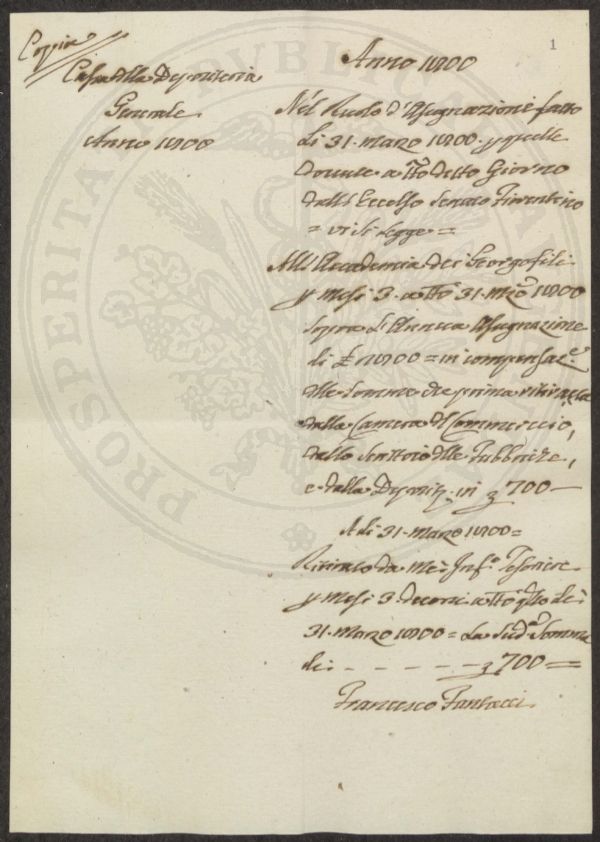 Coppia
Cassa della Depositeria
Generale
Anno 1800
1
Anno 1800
Nel Ruolo d'Assegnazione fatto
li 31. marzo 1800. p quelle
dovute a tto detto Giorno
dall'Eccelso Senato Fiorentino
= vi si legge =
All'Accademia dei Georgofili
p Mesi 3. a tto 31. Mrzo 1800
sopra l'Annua Assegnazione
di £ 2800 = in compensaze
delle somme che prima ritirava
dalla Camera di Commercio,
dallo Scrittoio delle Fabbriche,
e dalla Deposita in 700 —
A di 31. Marzo 1800 =
Ritirato da Me Info Tesoriere
p Mesi 3 decorsi a tto qsto dì
31. Marzo 1800 = La Suda Somma
di - - - - - 700 =
Francesco Fantacci
PROSPERITATI PVBLICAE